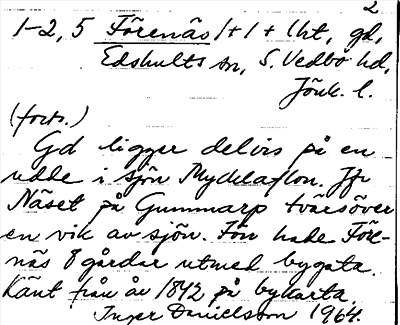 2
1-2, 5 Förenäs 1+1+1ht, gd,
Edshults sn, S. Vedbo hd,
Jönk. l.
(forts.)
Gd ligger delvis på en
udde i sjön Mycklaflon. Jfr
Näset på Gummarp tvärsöver
en vik av sjön. Förr hade Före-
näs 8 gårdar utmed bygata.
Känt från år 1842 på bykarta.
Inger Danielsson 1964.